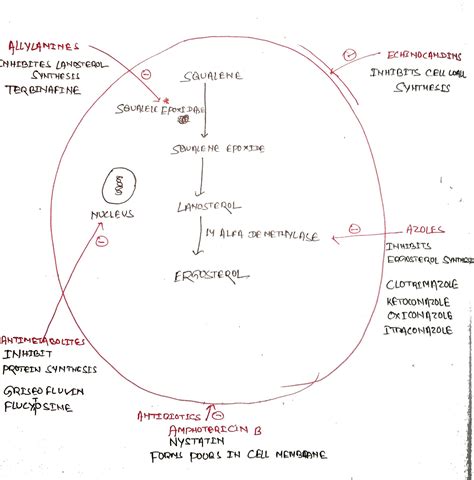 ALLYLAMINES
INHIBITES LANOSTEROL
SYNTHESIS
TERBINAFINE
ECHINOCANDINS
INHIBITS CELL WALL
SYNTHESIS
SQUALENE
SQUALENE EPOXIDASE
SQUALENE EPOXIDE
NUCLEUS
LANOSTEROL
14 ALFA DEMETHYLASE
ERGOSTEROL
AZOLES
INHIBITS
ERGOSTEROL SYNTHESIS
CLOTRIMAZOLE
KETOCONAZOLE
OXICONAZOLE
ITRACONAZOLE
ANTIMETABOLITES
INHIBIT
PROTEIN SYNTHESIS
GRISEOFLUVIN
FLUCYTOSINE
ANTIBIOTICS
AMPHOTERICIN B
NYSTATIN
FORMS POURS IN CELL MEMBRANE